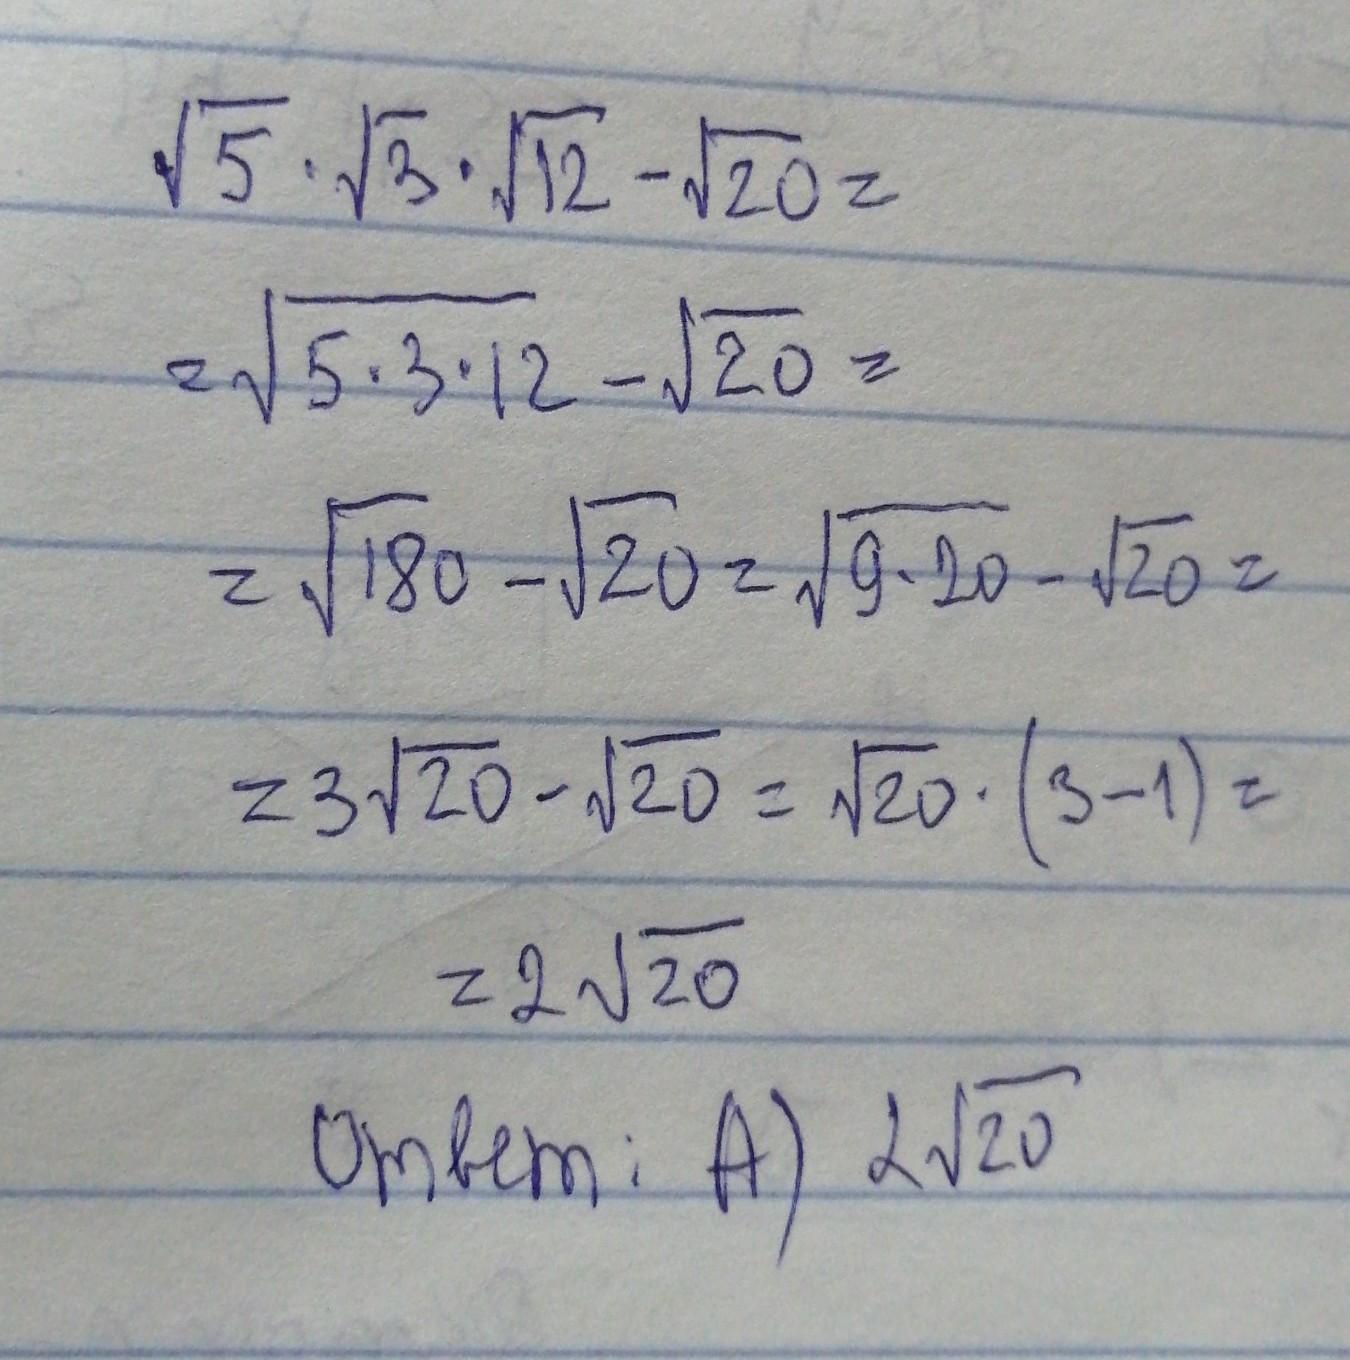 √5 · √3 · √12 - √20 =
= √5·3·12 - √20 =
= √180 - √20 = √9·20 - √20 =
= 3√20 - √20 = √20 · (3-1) =
= 2√20
Ответ: А) 2√20